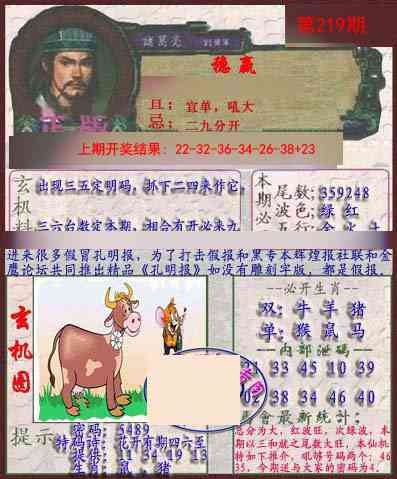 第219期
諸葛亮
稳赢
宜单,吼大
忌:二九分开
正版
上期开奖结果: 22-32-36-34-26-38+23
玄机料
出现三五定明码,抓下二四来作它,
三六台数定本期,相合有开必来九
本期必
尾数:359248
波色:绿 红
五行:金 火 土
进来很多假冒孔明报,为了打击假报和黑专本辉煌报社联和金
鹰论坛共同推出精品《孔明报》如没有雕刻字版,都是假报.
玄机图
必开生肖
双:牛羊猪
单:猴鼠马
内部泄码
21 33 45 10 39
02 38 34 46 40
會最新統计:
总分为大,红波旺,次绿波,本
期以三和就之尾数大旺,本仙机
特如下推介,吼够号码两个:46
35,今期送与大家的密码为4.
提示
密码: 5489
特码诗:花开有期四六至
提供: 11 34 19 13
生肖:鼠,猪